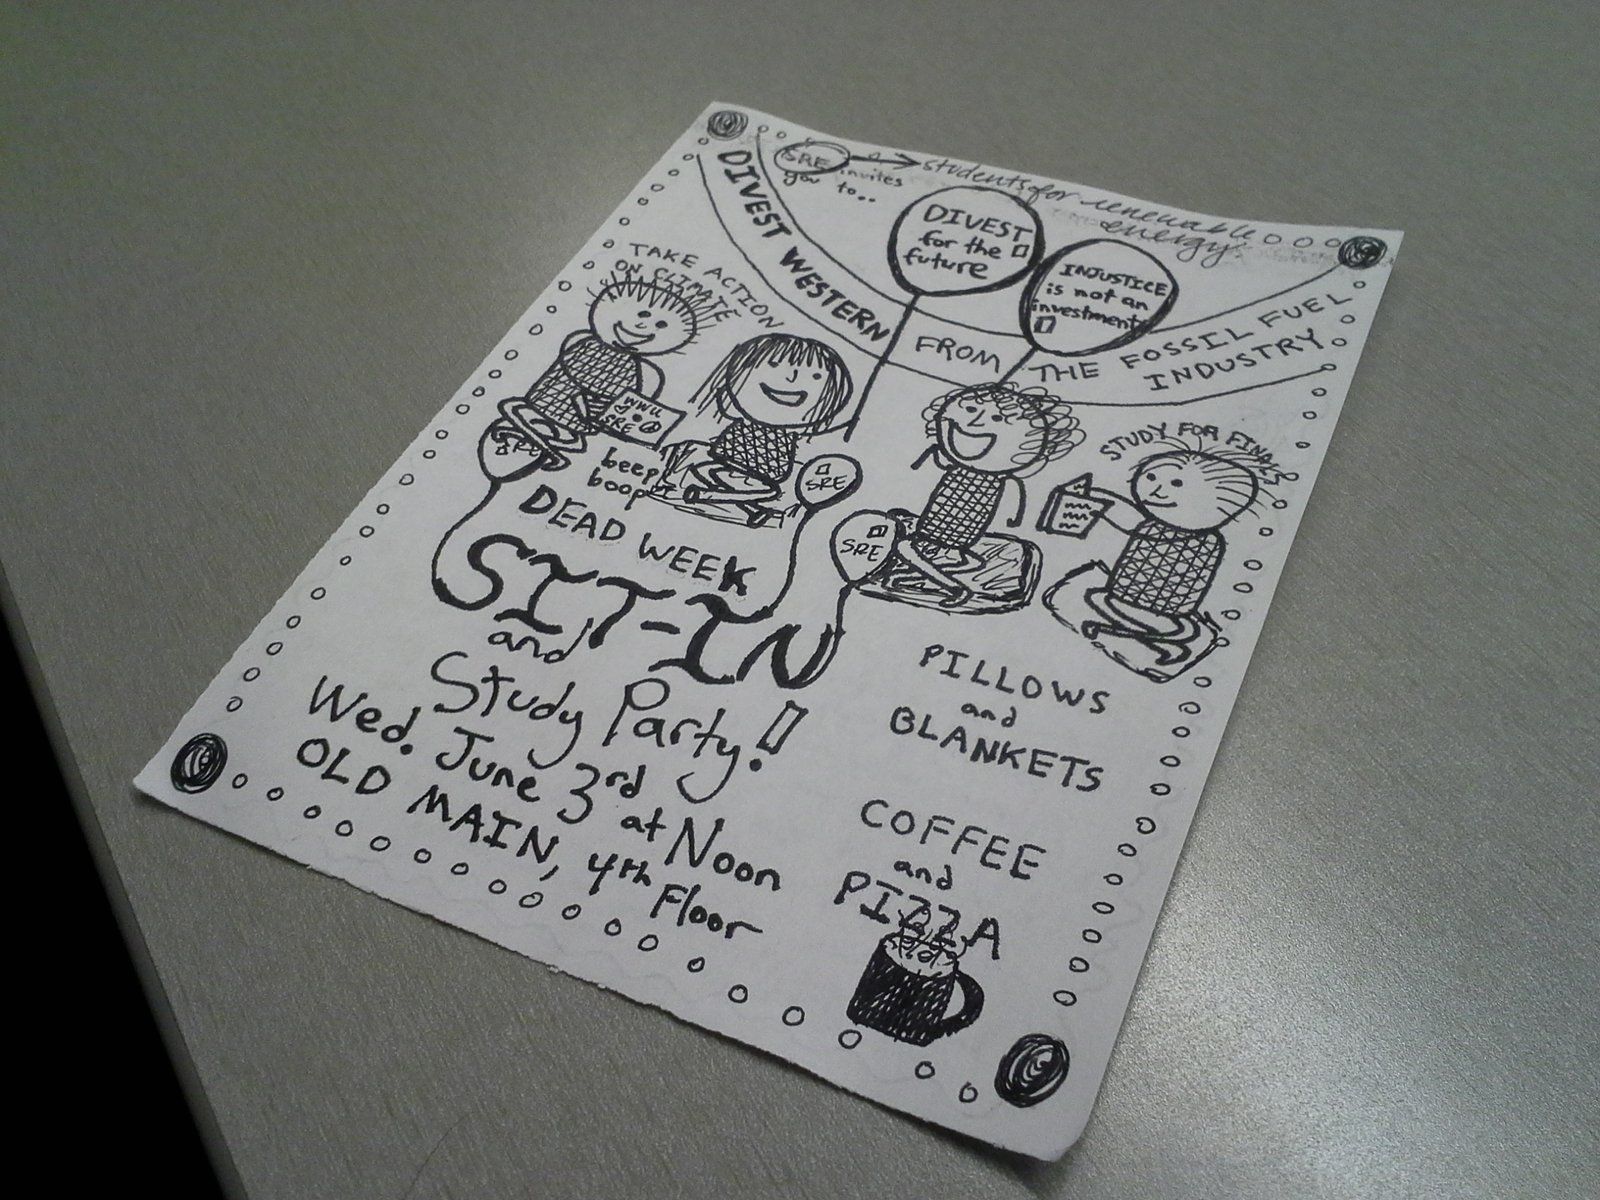 SRE → students for renewable
energy
invites
you to..
DIVEST
for the
future
INJUSTICE
is not an
investment
DIVEST WESTERN FROM THE FOSSIL FUEL
INDUSTRY
TAKE ACTION
ON CLIMATE
WWU
SRE
SRE
beep
boop
SRE
SRE
STUDY FOR FINALS
DEAD WEEK
SIT-IN
and
Study Party!
Wed. June 3rd at Noon
OLD MAIN, 4th Floor
PILLOWS
and
BLANKETS
COFFEE
and
PIZZA